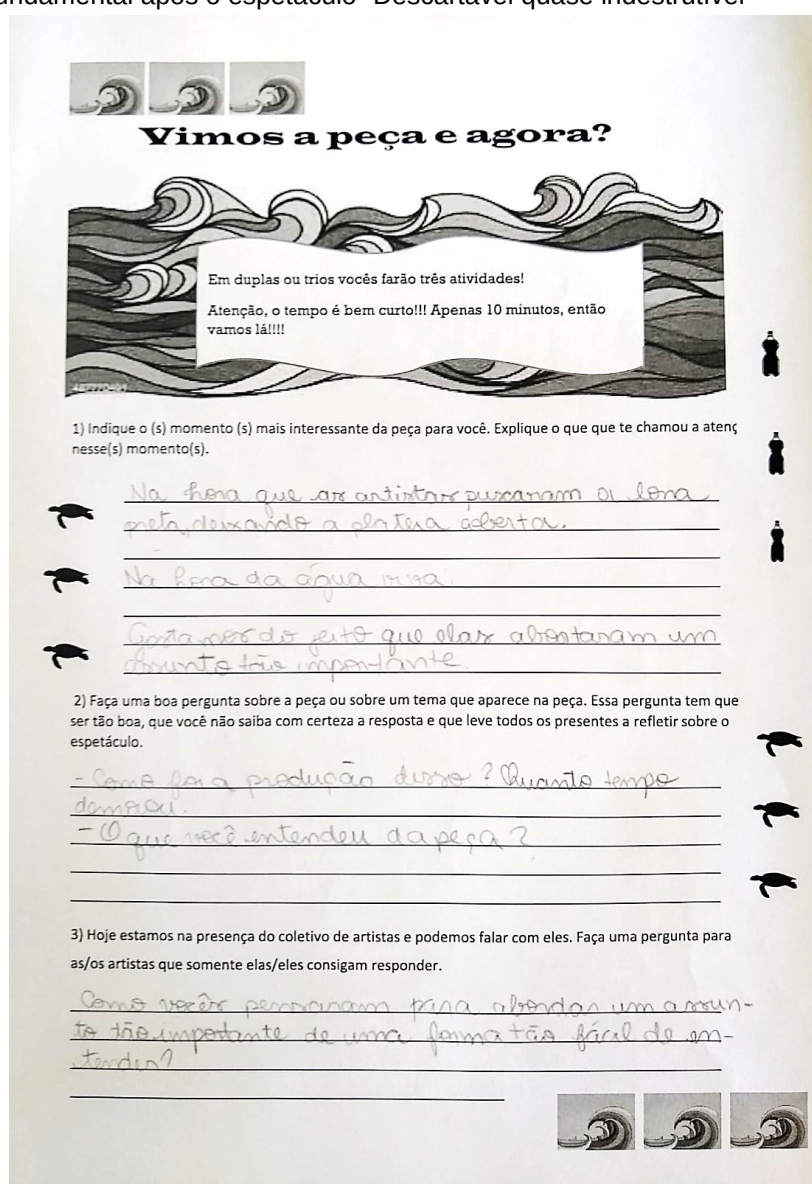 fundamental após o espetáculo "Descartável quase indestrutível"
Vimos a peça e agora?
Em duplas ou trios vocês farão três atividades!
Atenção, o tempo é bem curto!!! Apenas 10 minutos, então
vamos lá!!!!
1) Indique o (s) momento (s) mais interessante da peça para você. Explique o que que te chamou a atenç
nesse(s) momento(s).
Na hora que as artistas puxaram a lona
preta, deixando a plateia coberta.
Na hora da água viva.
Gostamos do jeito que elas abortaram um
assunto tão importante.
2) Faça uma boa pergunta sobre a peça ou sobre um tema que aparece na peça. Essa pergunta tem que
ser tão boa, que você não saiba com certeza a resposta e que leve todos os presentes a refletir sobre o
espetáculo.
- Como foi a produção disso? Quanto tempo
demorou.
- O que você entendeu da peça?
3) Hoje estamos na presença do coletivo de artistas e podemos falar com eles. Faça uma pergunta para
as/os artistas que somente elas/eles consigam responder.
Como vocês pensaram para abordar um assun-
to tão importante de uma forma tão fácil de en-
tender?